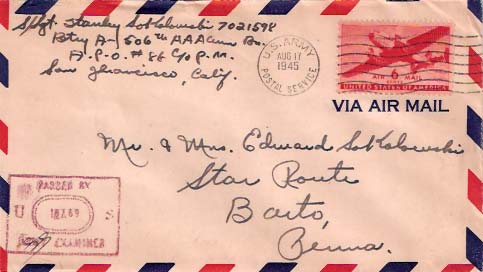 S/Sgt. Stanley Sotkolowski 7021598
Btry A- 506th AAAGun Bn.
A.P.O. # 86 C/O P.M.
San Francisco, Calif.
U.S. ARMY
AUG 17
1945
POSTAL SERVICE
6
CENTS
AIR MAIL
UNITED STATES OF AMERICA
VIA AIR MAIL
Mr. & Mrs. Edward Sotkolowski
Star Route
Barto,
Penna.
PASSED BY
U S
ARMY EXAMINER